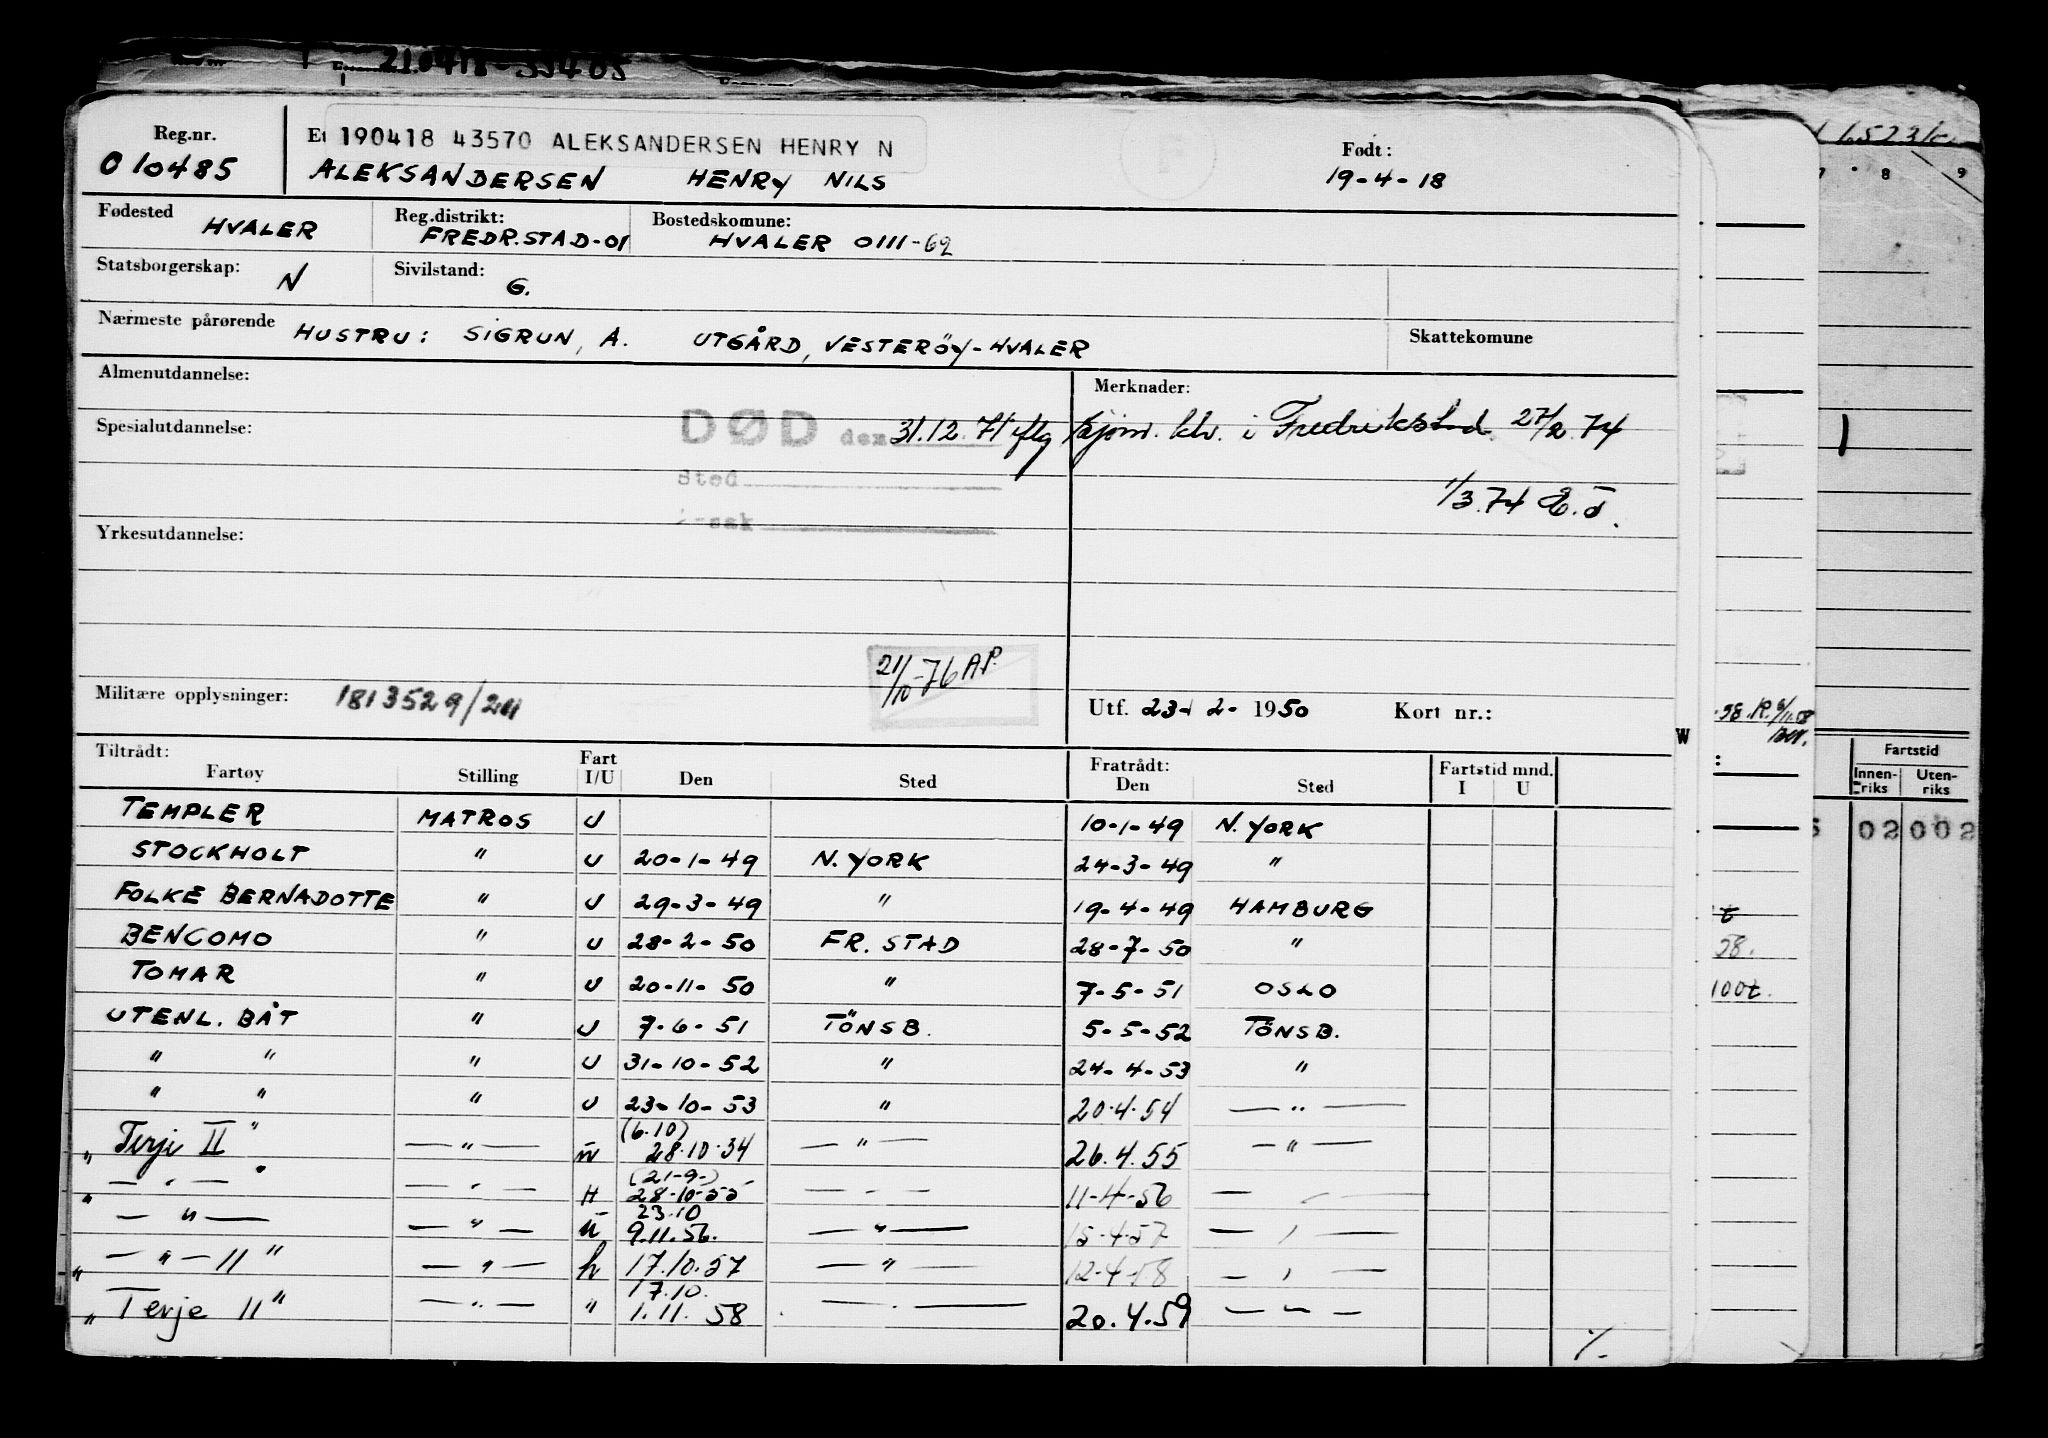 210418-55405
Reg.nr.
Et 190418 43570 ALEKSANDERSEN HENRY N
Født:
010485
ALEKSANDERSEN HENRY NILS
19-4-18
Fødested HVALER
Reg.distrikt: FREDR.STAD-01
Bostedskomune: HVALER 0111-62
Statsborgerskap: N
Sivilstand: G.
Nærmeste pårørende HUSTRU: SIGRUN, A. UTGÅRD, VESTERÖY-HVALER
Skattekomune
Almenutdannelse:
Merknader:
Spesialutdannelse:
DØD den 31.12.71 flg skjøm. klv. i Fredrikstad 27/2.74
Sted
1/3.74 E.T.
Yrkesutdannelse:
21/10-76 AP.
Militære opplysninger: 1813529/
Utf. 23-2-1950 Kort nr.:
Tiltrådt: Fartøy Stilling Fart I/U Den Sted Fratrådt: Den Sted Fartstid mnd. I U
TEMPLER MATROS U 10-1-49 N. YORK
STOCKHOLT " U 20-1-49 N. YORK 24-3-49 "
FOLKE BERNADOTTE " U 29-3-49 " 19-4-49 HAMBURG
BENCOMO " U 28-2-50 FR. STAD 28-7-50 "
TOMAR " U 20-11-50 " 7-5-51 OSLO
UTENL. BÅT " U 7-6-51 TÖNSB. 5-5-52 TÖNSB.
" " " U 31-10-52 " 24-4-53 "
" " " U 23-10-53 " 20.4.54 — " —
(6.10)
" Terje II " — " — u 28.10.34 — " — 26.4.55 — " —
(21-9-)
" — " — " — " — H 28-10-55 — " — 11-4-56 — " —
23.10
— " — — " — u 9.11.56. — " — 15-4-57 — " —
" — " — II " — " — h 17.10.57 — " — 12-4-58 — " —
17.10.
" Terje II " — " — " 1.11.58 — " — 20.4.59 — " —
%
W
8 9
Fartstid
Innen-riks Uten-riks
02 002
58.
100t.